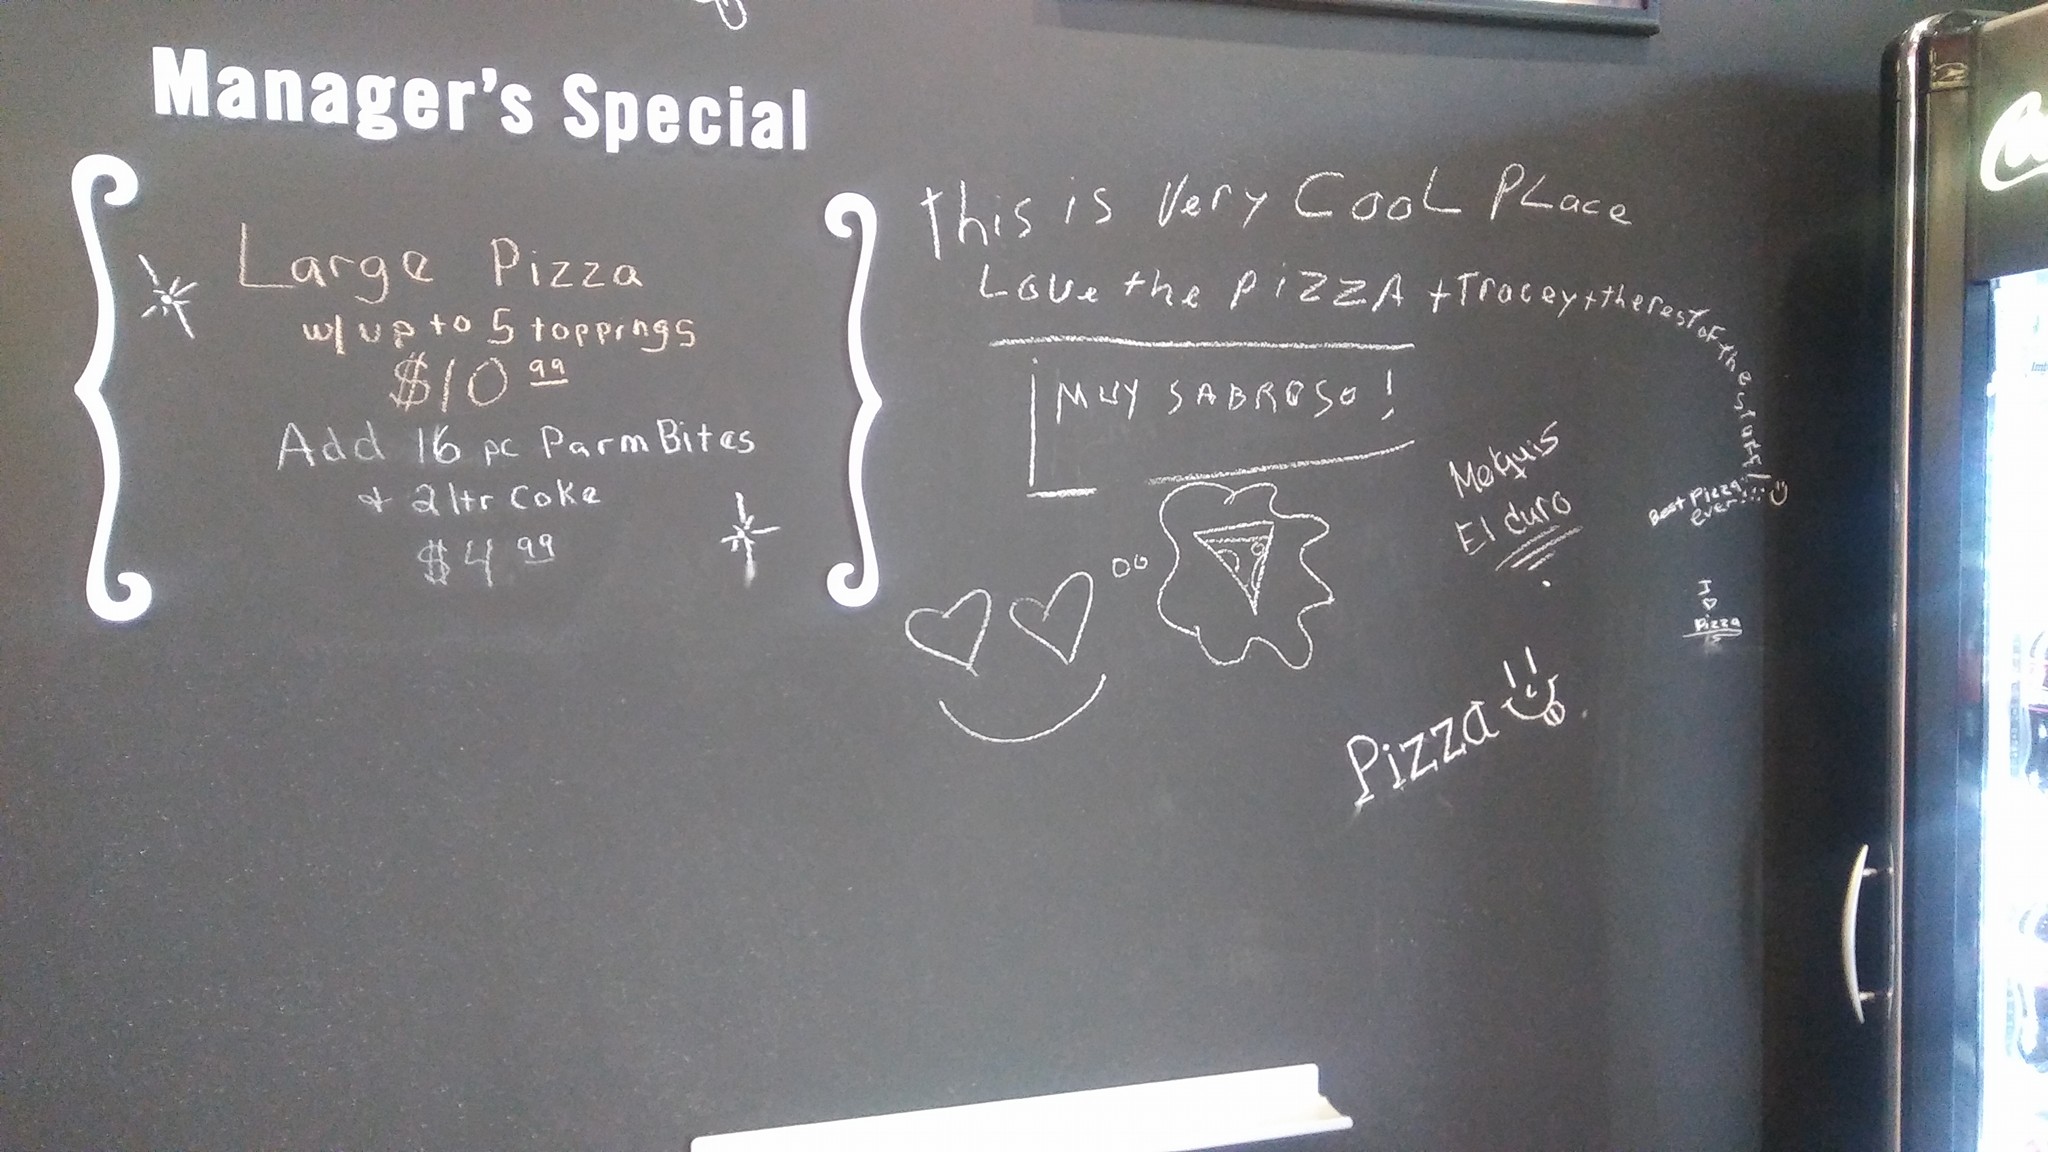 Manager's Special
Large Pizza
w/ up to 5 toppings
$10 99
Add 16 pc Parm Bites
+ 2 ltr Coke
$4 99
This is Very CooL PLace
Love the PIZZA + Tracey + the rest of the staff!
¡MUY SABROSO!
El duro
Best Pizza
ever!!!
I ♡
Pizza
Pizza